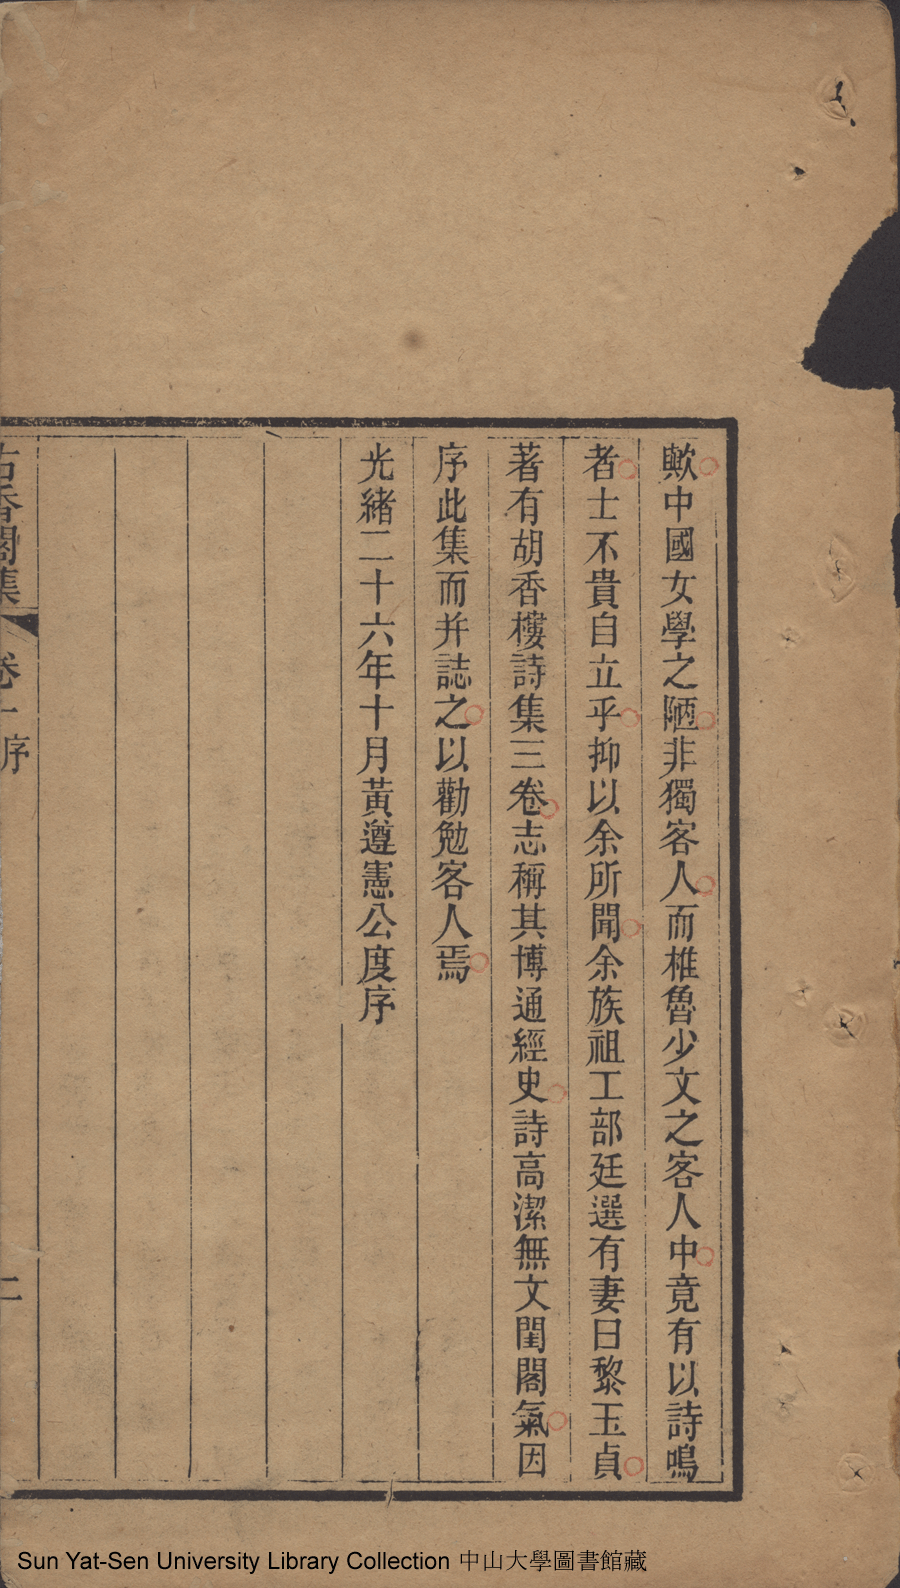 歟中國女學之陋非獨客人而椎魯少文之客人中竟有以詩鳴
者士不貴自立乎抑以余所聞余族祖工部廷選有妻曰黎玉貞
著有胡香樓詩集三卷志稱其博通經史詩高潔無文閨閣氣因
序此集而并誌之以勸勉客人焉
光緒二十六年十月黃遵憲公度序
古香閣集 卷一 序 二
Sun Yat-Sen University Library Collection 中山大學圖書館藏